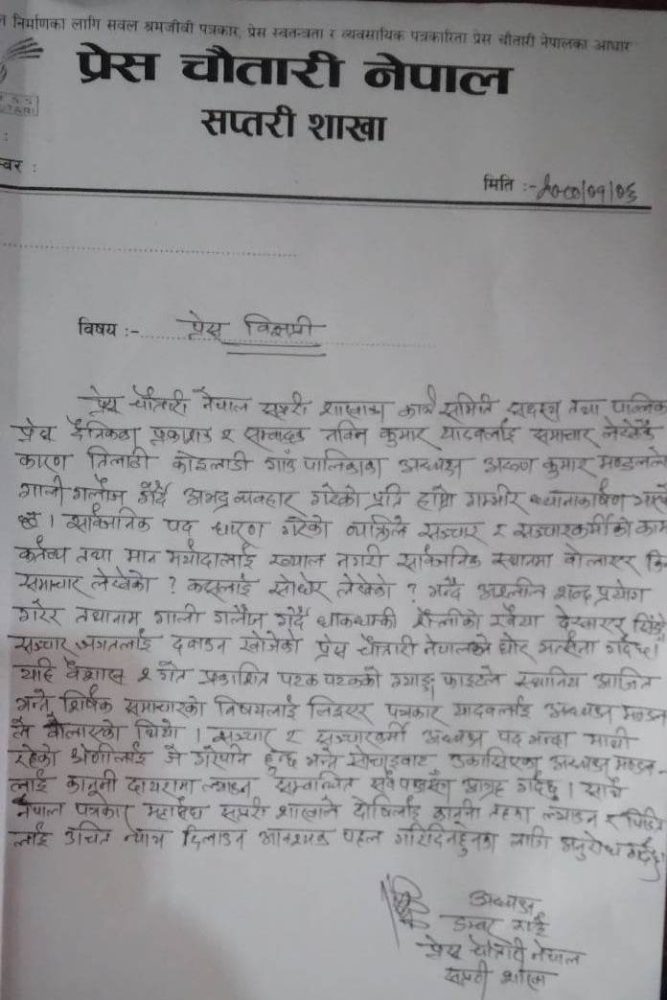 न निर्माणका लागि सवल श्रमजीवी पत्रकार, प्रेस स्वतन्त्रता र व्यवसायिक पत्रकारिता प्रेस चौतारी नेपालका आधार
प्रेस चौतारी नेपाल
सप्तरी शाखा
म्बर :
मिति :-
विषय :- प्रेस विज्ञप्ती
प्रेस चौतारी नेपाल सप्तरी शाखाका कार्य समिति सदस्य तथा पब्लिक
प्रेस दैनिकका प्रकाशक र सम्पादक नविन कुमार यादवलाई समाचार लेखेकै
कारण तिलाठी कोइलाडी गाउँ पालिकाका अध्यक्ष अरुण कुमार मण्डलले
गाली गलौज गर्दै अभद्र व्यवहार गरेको प्रति हाम्रो गम्भीर ध्यानाकर्षण भएको
छ । सार्वजनिक पद धारण गरेको व्यक्तिले सञ्चार र सञ्चारकर्मीको काम
कर्तव्य तथा मान मर्यादालाई ख्याल नगरी सार्वजनिक स्थानमा बोलाएर किन
समाचार लेखेको ? कसलाई सोधेर लेखेको ? भन्दै अश्लील शब्द प्रयोग
गरेर तथानाम गाली गलौज गर्दै धाकधम्की शैलीको रवैया देखाएर
सञ्चार जगतलाई दवाउन खोजेको प्रेस चौतारी नेपालले घोर भर्त्सना गर्दछ।
यहि वैशाख २ गते प्रकाशित पटक पटकको ग्याङ्ग फाइटले स्थानिय आजित
भन्ने शिर्षक समाचारको विषयलाई लिएर पत्रकार यादवलाई अध्यक्ष मण्डल
ले बोलाएको थियो । सञ्चार र सञ्चारकर्मी अध्यक्ष पद भन्दा माथी
रहेको श्रेणीलाई जे गरेपनि हुन्छ भन्ने सोचाइबाट उकासिएका अध्यक्ष मण्डल-
लाई कानूनी दायरामा ल्याउन सम्बन्धित सबै पक्षसँग आग्रह गर्दछु । साथै
नेपाल पत्रकार महासंघ सप्तरी शाखाले दोषिलाई कानूनी ल्याउन र पिडित
लाई उचित न्याय दिलाउन आवश्यक पहल गरिदिनुहुनका लागि अनुरोध गर्दछु
अध्यक्ष
डम्बर राई
प्रेस चौतारी नेपाल
सप्तरी शाखा